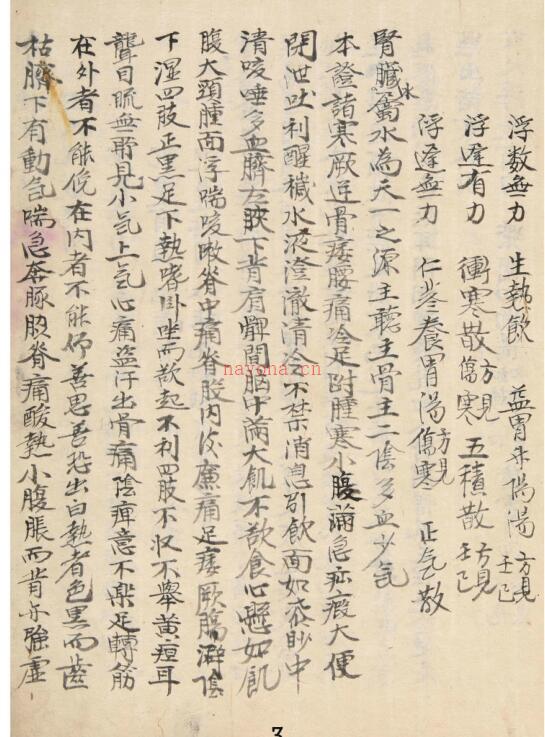 浮数無力 生執飲 益胃升陽湯方見壬己
浮遲有力 衝寒散方見傷寒 五積散方見壬己
浮遲無力 仁荖養胃湯方見傷寒 正气散
腎臟属水水為天一之源主聽主骨主二陰多血少气
本證諸寒厥逆骨痿腰痛冷足附腫寒小腹滿急疝瘕大便
閉泄吐利醒穢水液澄澈清冷不禁消息引飲面如炭眇中
清咬唾多血臍左脥下背肩髀間胸中滿大飢不欲食心懸如飢
腹大頸腫而浮喘咳脊中痛脊股内後廉痛足痿厥腸澼陰
下湿四肢正黒足下熱嗜卧坐而欲起不利四肢不収不舉黄疸耳
聾目䀮無所見小气上气心痛盗汗出骨痛陰痺意不楽足轉筋
在外者不能俛在内者不能仰善思善恐出白熱者色黒而齒
枯臍下有動气喘急奔豚股脊痛酸熱小腹脹而背亦強虚
nayona.cn
3